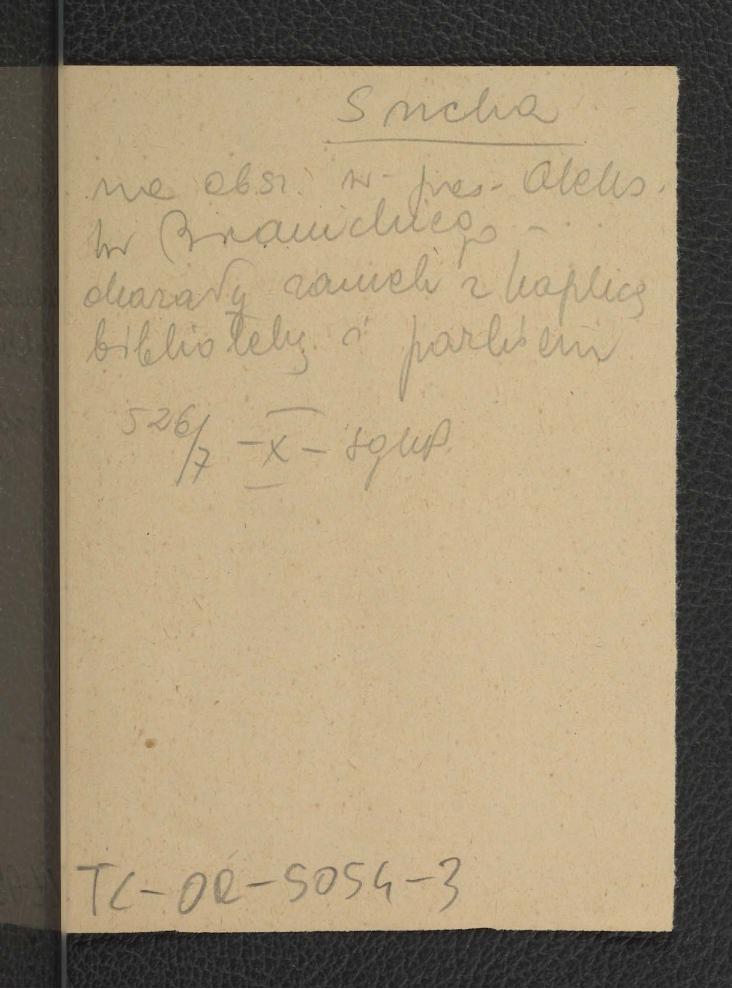 Sucha
na obsz. w pos. Aleks.
hr Branickiego -
okazały zamek z kaplicą
biblioteką i parkiem
526/7 - X - SgKP.
TC-OR-5054-3